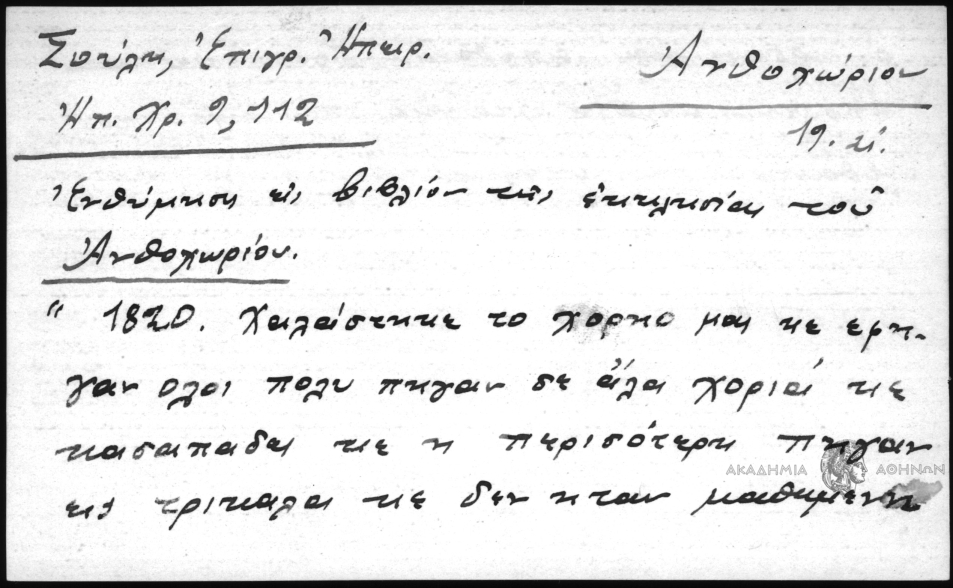 Σούλη, Ἐπιγρ. Ἠπειρ.
Ἠπ. Χρ. 9, 112
Ἀνθοχώριον
19. κ.
Ἐνθύμηση εἰς βιβλίον τῆς ἐκκλησίας τοῦ
Ἀνθοχωρίου.
" 1820. Χαλάστηκε το χορηο μας κε ερη-
γαν ολοι πολυ πηγαν σε ἄλα χοριά κε
κασαπαδες κε η περισότερη πηγαν
εις τρικαλα κε δεν ηταν μαθημενη
ΑΚΑΔΗΜΙΑ ΑΘΗΝΩΝ